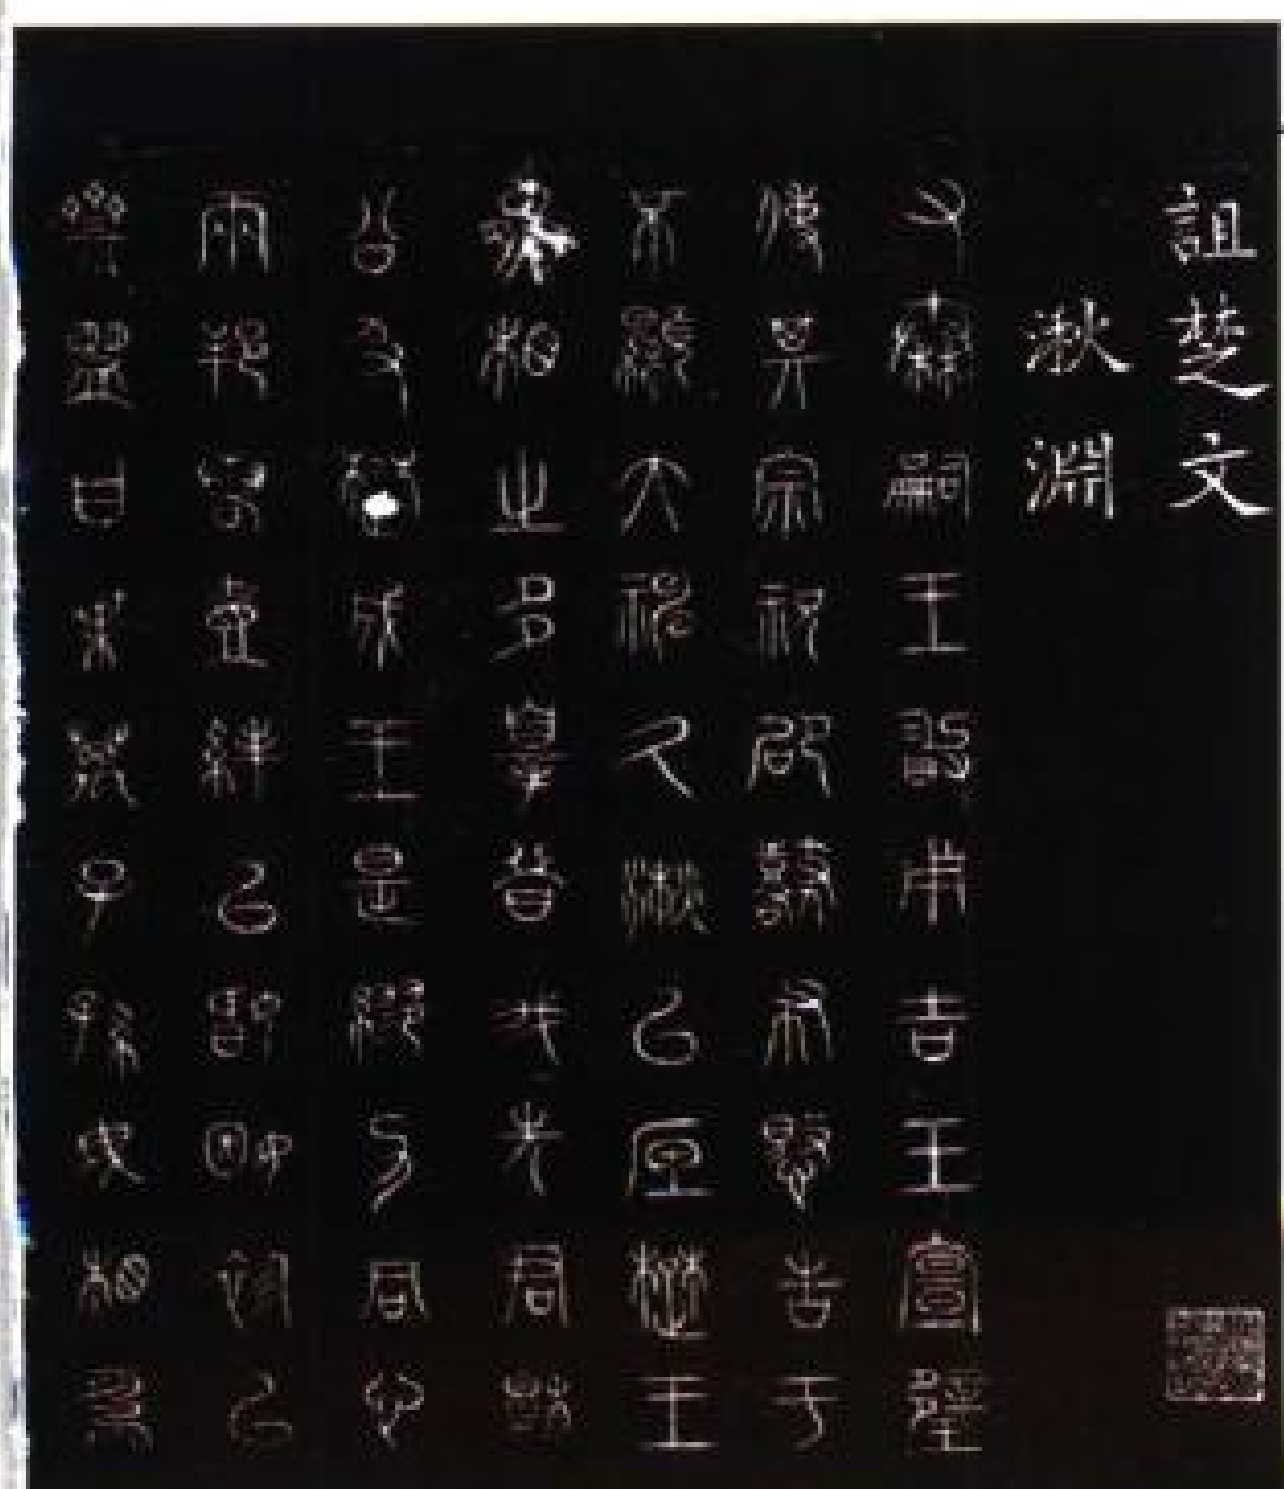 詛楚文
湫淵
又秦嗣王敢用吉玉宣璧
使其宗祝邵鼛布憼告于
不顯大神久湫以底楚王
熊相之多辠昔我先君穆
公及楚成王是繆力同心
兩邦若壹絆以婚姻袗以
齊盟曰枼萬子孫毋相為